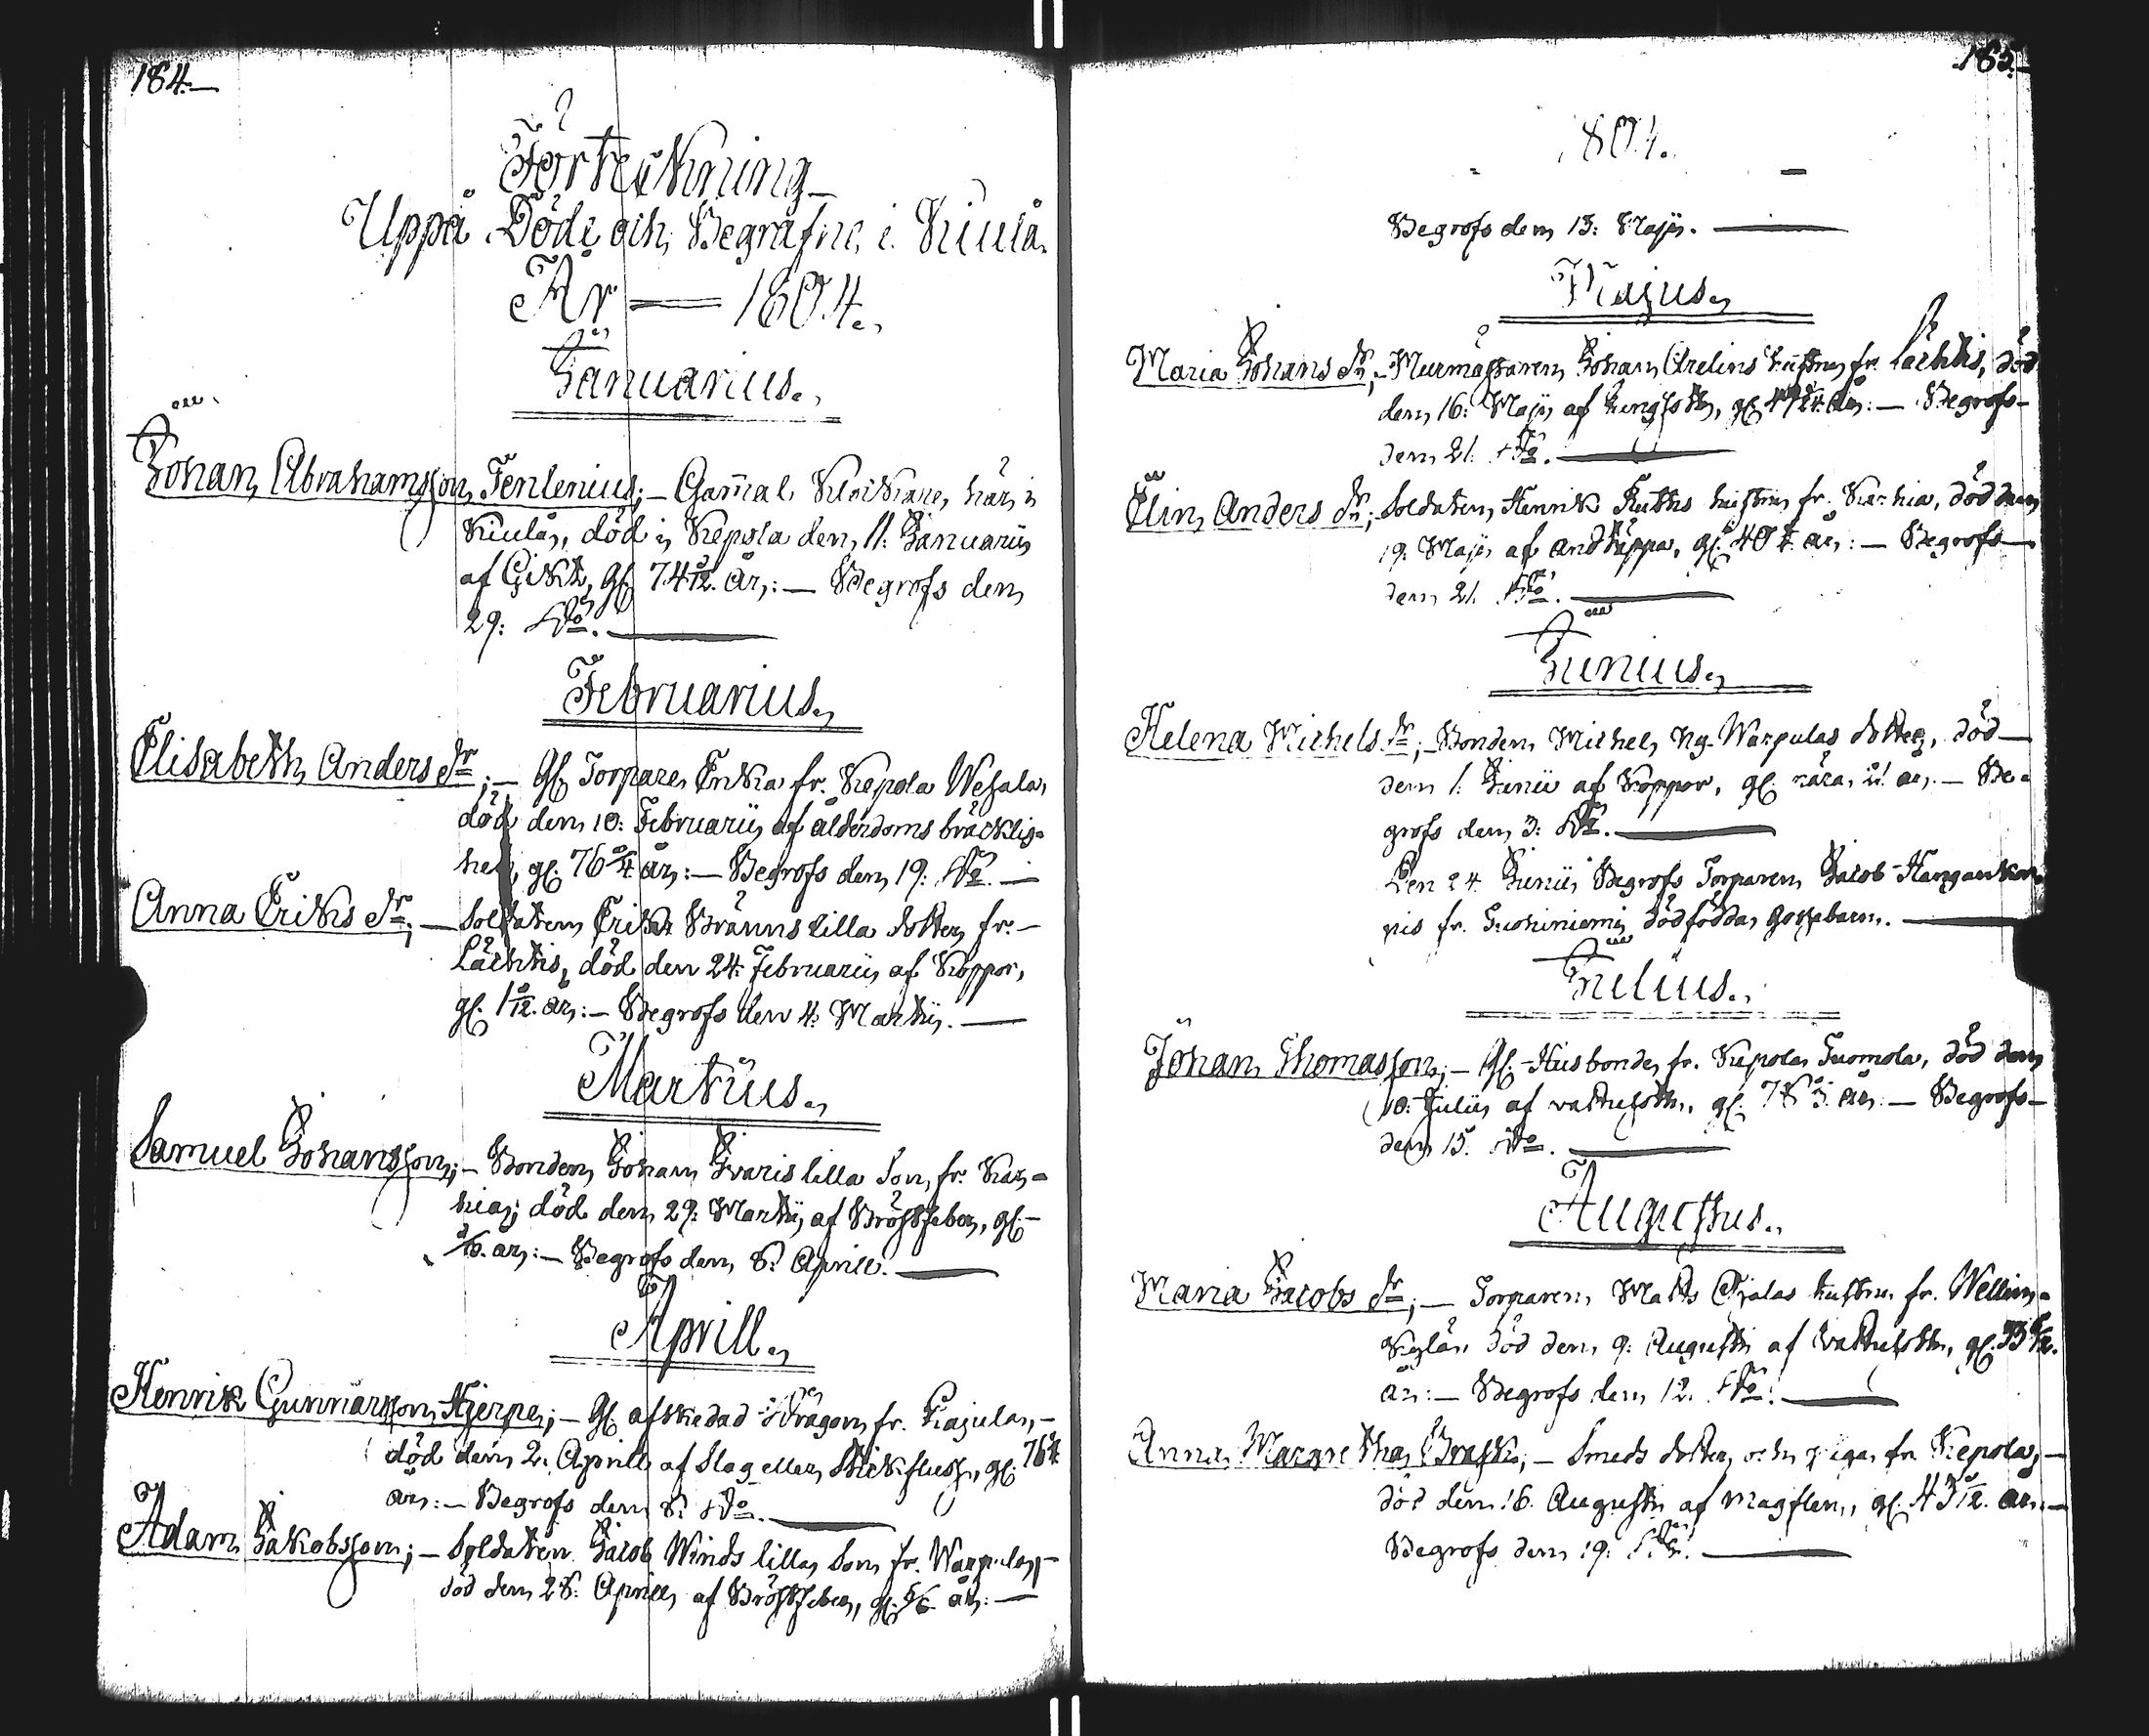 184.
Förteckning
Uppå Döde och Begrafne i Kiula.
År — 1804.
Januarius.
Johan Abrahamsson Fenlenius; — Gam̄al Klockare, här i
Kiula, död i Kepola den 11. Januarii
af Gikt, gl. 74 /12. År: — Begrofs den
29: dito.
Februarius.
Elisabeth Anders dr; — gl. Torpare Enka fr. Kepola Wesala,
död den 10: Februarii af ålderdoms bräcklig-
het, gl. 76 /4 år: — Begrofs den 19: dito. —
Anna Eriks dr; — Soldaten Eriks Bränns lilla dotter fr. —
Lächtis, död den 24: Februarii af Koppor,
gl. 1 /12. år: — Begrofs den 4. Martii. —
Martius.
Samuel Johansson; — Bonden Johan Ivaris lilla Son, fr. Kar-
hia; död den 29: Martii af Bröstfeber, gl. —
år: — Begrofs den 8: Aprill. —
Aprill.
Henrik Gunnarsson Hjerpe; — gl. afskedad Dragon, fr. Kajula, —
död den 2. Aprill af Slag eller Stickfluss, gl. 76
år: — Begrofs den 8: dito. —
Adam Jakobsson; — Soldaten Jacob Winds lilla Son fr. Warpula, —
död den 28: Aprill af Bröstfeber, gl. 5/6 år: —
185.
1804.
Begrofs den 13: Maji. —
Majus.
Maria Johans dr; — Murmästaren Johan Arelins hustru fr. Lächtis, död
den 16: Maji af lungsot, gl. år: — Begrofs —
den 21. dito. —
Elin Anders dr; Soldaten Henrik Ruths hustru fr. Karhia, död den
19: Maji af andtäppa, gl. 40 år: — Begrofs —
den 21. dito. —
Junius.
Helena Michels dr; — Bonden Michel Ng. Warpulas dotter, död —
den 1. Junii af Koppor, gl. nära 2. år. — Be-
grofs den 3: dito. —
Den 24. Junii Begrofs Torparen Jacob
fr. dödfödda gossebarn. —
Julius.
Johan Thomasson; — gl. Husbonde fr. Kepola Tuomola, död den
10: Julii af vattusot, gl. 78 år. — Begrofs —
den 15. dito. —
Augustus.
Maria Jacobs dr; — Torparen Matts Ojalas hustru fr. Wellin-
kylä, död den 9: Augusti af vattusot, gl. 35 /12.
år: — Begrofs den 12. dito. —
Anna Margretha Brask; — Smeds dotter och piga fr. Kepola, —
död den 16. Augusti af magflen, gl. 43 /12. år. —
Begrofs den 19: dito. —